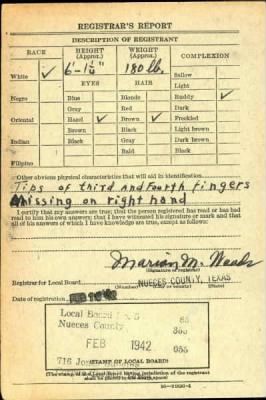 REGISTRAR'S REPORT
DESCRIPTION OF REGISTRANT
RACE HEIGHT (Approx.) WEIGHT (Approx.) COMPLEXION
White ✓ 6'-1¼" 180 lb. Sallow
EYES HAIR Light
Negro Blue Blonde Ruddy ✓
Gray Red Dark
Oriental Hazel ✓ Brown ✓ Freckled
Brown Black Light brown
Indian Black Gray Dark brown
Bald Black
Filipino
Other obvious physical characteristics that will aid in identification.
Tips of third and fourth fingers
Missing on right hand
I certify that my answers are true; that the person registered has read or has had
read to him his own answers; that I have witnessed his signature or mark and that
all of his answers of which I have knowledge are true, except as follows:
Marion M.
(Signature of registrar)
Registrar for Local Board NUECES COUNTY, TEXAS
(Number) (City or county) (State)
Date of registration FEB 16 42
Local Board No. 3 65
Nueces County,
FEB 1942 055
716
(STAMP OF LOCAL BOARD)
(The stamp of the Local Board having jurisdiction of the registrant
shall be placed in the above space.)